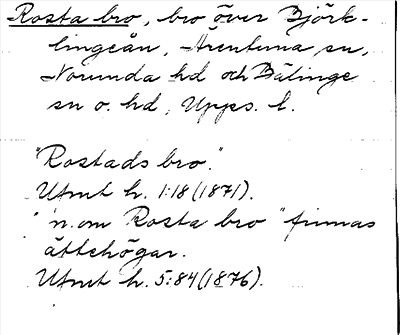 Rosta bro, bro över Björk-
lingeån, Ärentuna sn,
Norunda hd och Bälinge
sn o. hd, Upps. l.
"Rostads bro."
Utmt h. 1:18 (1871).
"n. om Rosta bro" finnas
ättehögar.
Utmt h. 5:84 (1876).